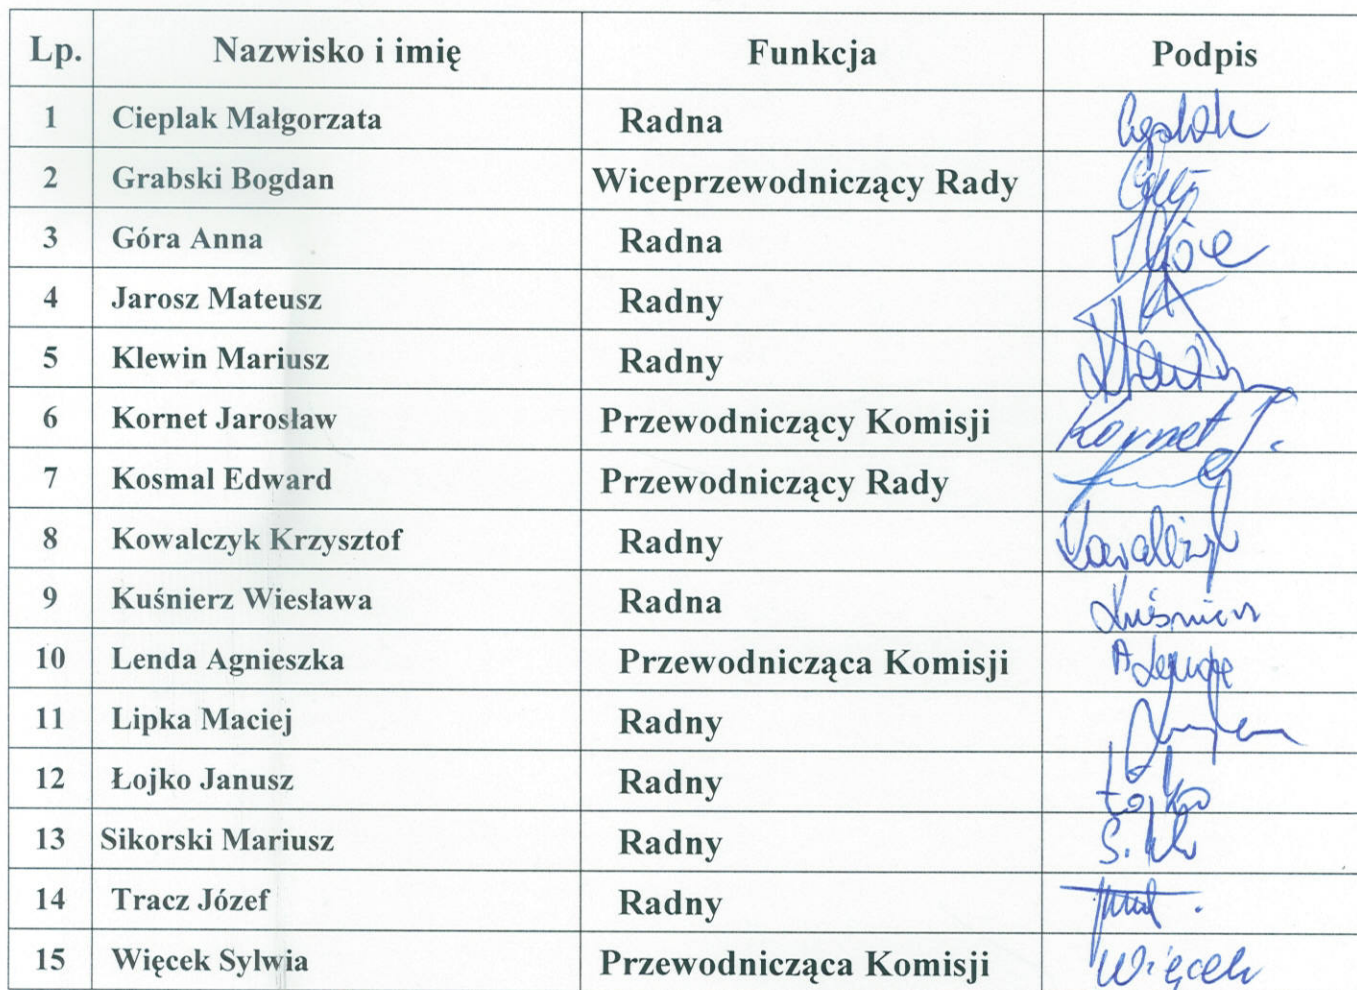 Lp. Nazwisko i imię Funkcja Podpis
1 Cieplak Małgorzata Radna
2 Grabski Bogdan Wiceprzewodniczący Rady
3 Góra Anna Radna
4 Jarosz Mateusz Radny
5 Klewin Mariusz Radny
6 Kornet Jarosław Przewodniczący Komisji Kornet J.
7 Kosmal Edward Przewodniczący Rady
8 Kowalczyk Krzysztof Radny Kowalczyk
9 Kuśnierz Wiesława Radna Kuśnierz
10 Lenda Agnieszka Przewodnicząca Komisji A Lenda
11 Lipka Maciej Radny
12 Łojko Janusz Radny Łojko
13 Sikorski Mariusz Radny
14 Tracz Józef Radny
15 Więcek Sylwia Przewodnicząca Komisji Więcek